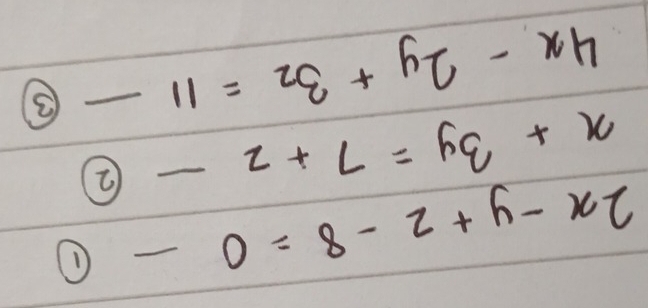 2x - y + z - 8 = 0 — ①
x + 3y = 7 + z — ②
4x - 2y + 3z = 11 — ③